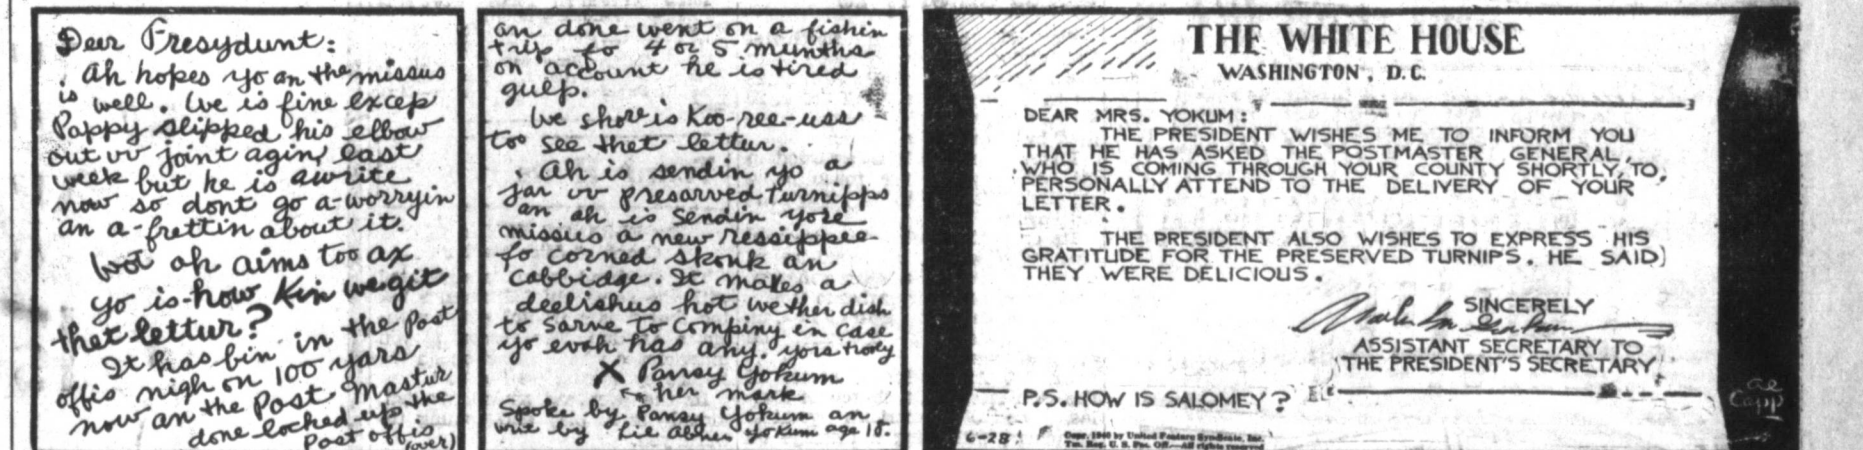 Deer Presydunt:
Ah hopes yo an the missus
is well. We is fine excep
Pappy slipped his elbow
out uv joint agin last
week but he is awrite
now so dont go a-worryin
an a-frettin about it.
Wot ah aims too ax
yo is-how kin we git
thet lettur?
It has bin in the Post
offis nigh on 100 yars
now an the Post Mastur
done locked up the
Post offis
(over)
an done went on a fishin
trip fo 4 or 5 munths
on account he is tired
gulp.
We shore is Koo-ree-uss
too see thet lettur.
Ah is sendin yo a
jar uv presarved turnipps
an ah is sendin yore
missus a new ressippee
fo corned skonk an
cabbidge. It makes a
deelishus hot wether dish
to sarve to compiny in case
yo evah has any. yors trooly
X Pansy Yokum
her mark
Spoke by Pansy Yokum an
writ by Lil Abner Yokum age 18.
THE WHITE HOUSE
WASHINGTON, D.C.
DEAR MRS. YOKUM:
THE PRESIDENT WISHES ME TO INFORM YOU
THAT HE HAS ASKED THE POSTMASTER GENERAL,
WHO IS COMING THROUGH YOUR COUNTY SHORTLY, TO
PERSONALLY ATTEND TO THE DELIVERY OF YOUR
LETTER.
THE PRESIDENT ALSO WISHES TO EXPRESS HIS
GRATITUDE FOR THE PRESERVED TURNIPS. HE SAID
THEY WERE DELICIOUS.
SINCERELY
ASSISTANT SECRETARY TO
THE PRESIDENT'S SECRETARY
P.S. HOW IS SALOMEY?
AL
CAPP
6-28
Copr. 1940 by United Feature Syndicate, Inc.
Tm. Reg. U. S. Pat. Off.—All rights reserved